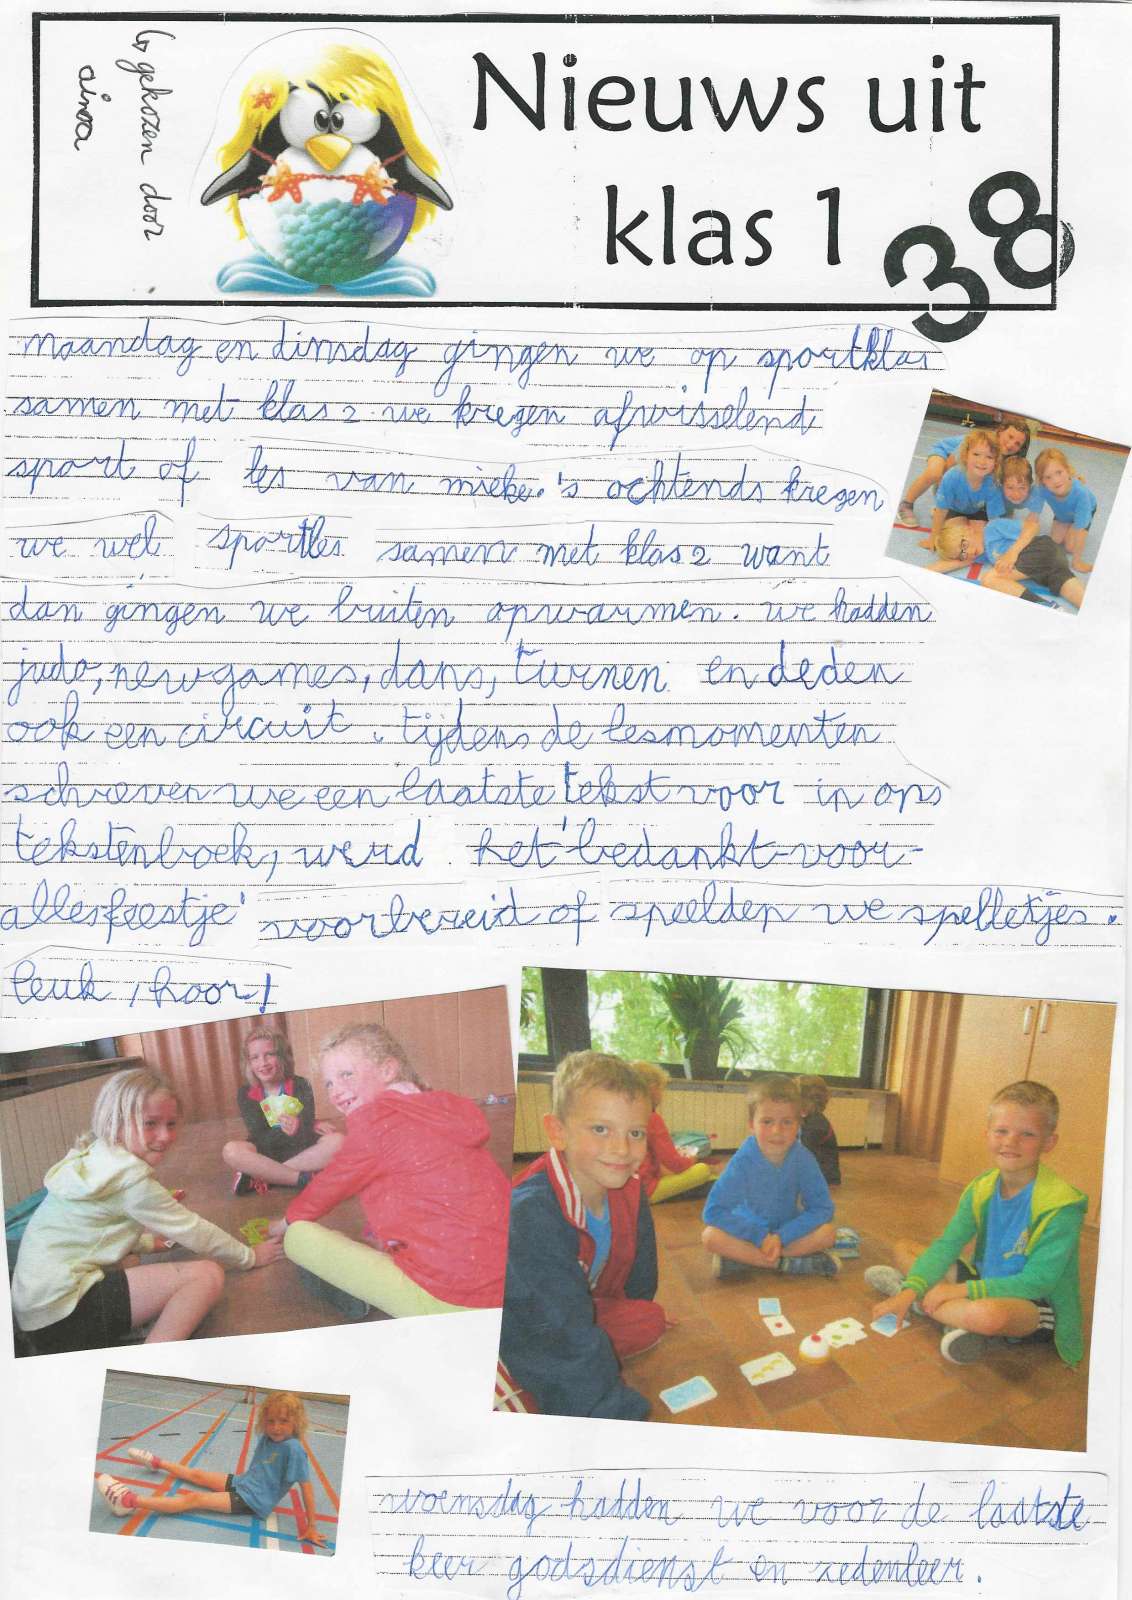 ↳ gekozen door
aimoa
Nieuws uit
klas 1
38
maandag en dinsdag gingen we op sportklas
samen met klas 2. we kregen afwisselend
sport of les van mieke. 's ochtends kregen
we wel sportles samen met klas 2 want
dan gingen we buiten opwarmen. we hadden
judo, newgames, dans, turnen en deden
ook een circuit. tijdens de lesmomenten
schreven we een laatste tekst voor in ons
tekstenboek, werd het 'bedankt-voor-
allesfeestje' voorbereid of speelden we spelletjes.
leuk, hoor!
woensdag hadden we voor de laatste
keer godsdienst en zedenleer.